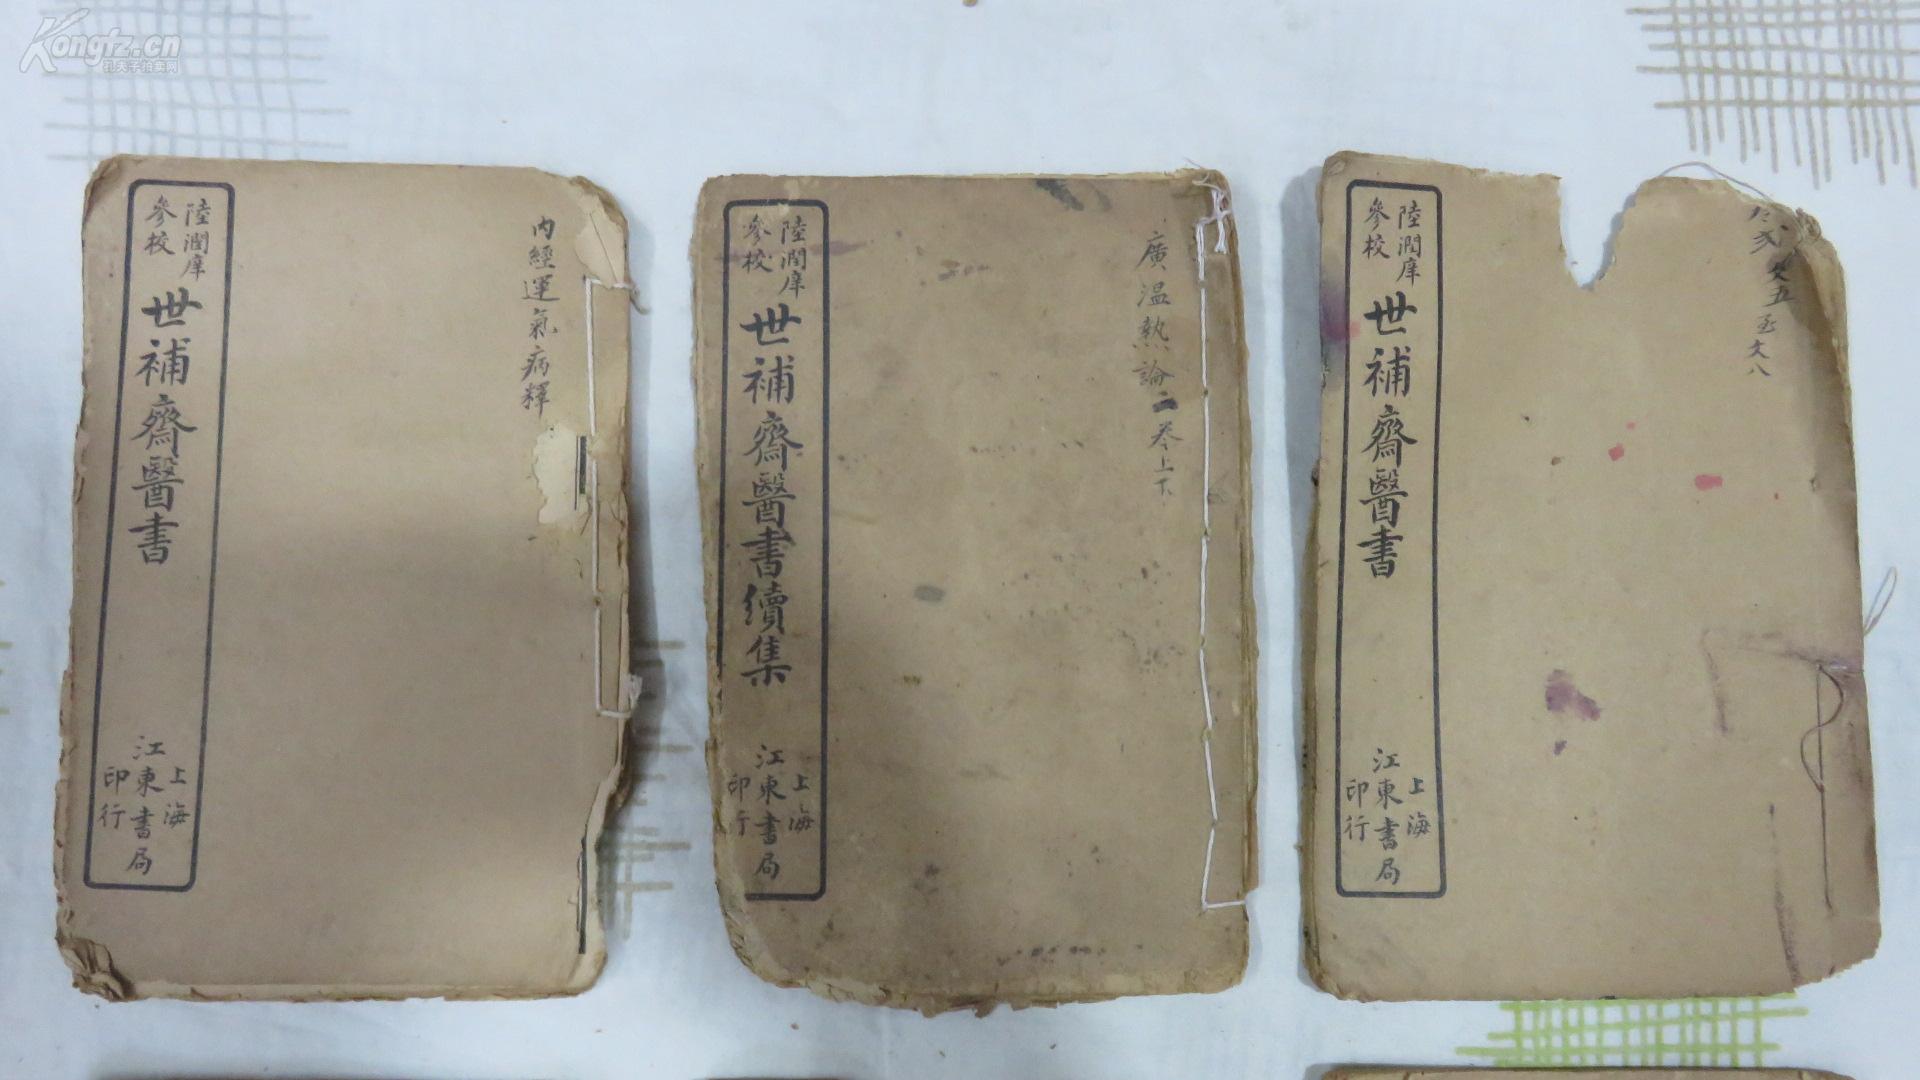 Kongfz.cn
孔夫子拍卖网
陸潤庠
參校
世補齋醫書
上海
江東書局
印行
內經運氣病釋
陸潤庠
參校
世補齋醫書續集
上海
江東書局
印行
廣温熱論二卷上下
陸潤庠
參校
世補齋醫書
上海
江東書局
印行
文五至文八